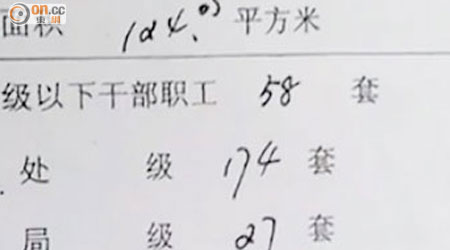 on.cc
東網
面积 124.00 平方米
级以下干部职工 58 套
处 级 174 套
局 级 27 套